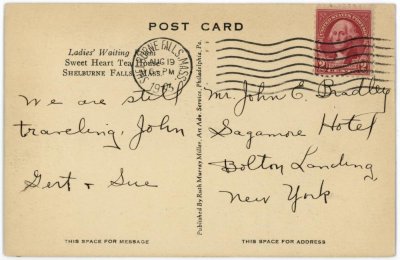 POST CARD
Ladies' Waiting Room
Sweet Heart Tea House
SHELBURNE FALLS, MASS.
SHELBURNE FALLS, MASS.
AUG 19
PM
UNITED STATES POSTAGE
2 2
We are still
traveling, John
Gert & Sue
Mr. John E. Bradley
Sagamore Hotel
Bolton Landing
New York
Published by Ruth Murray Miller, Art Adv. Service, Philadelphia, Pa.
THIS SPACE FOR MESSAGE
THIS SPACE FOR ADDRESS